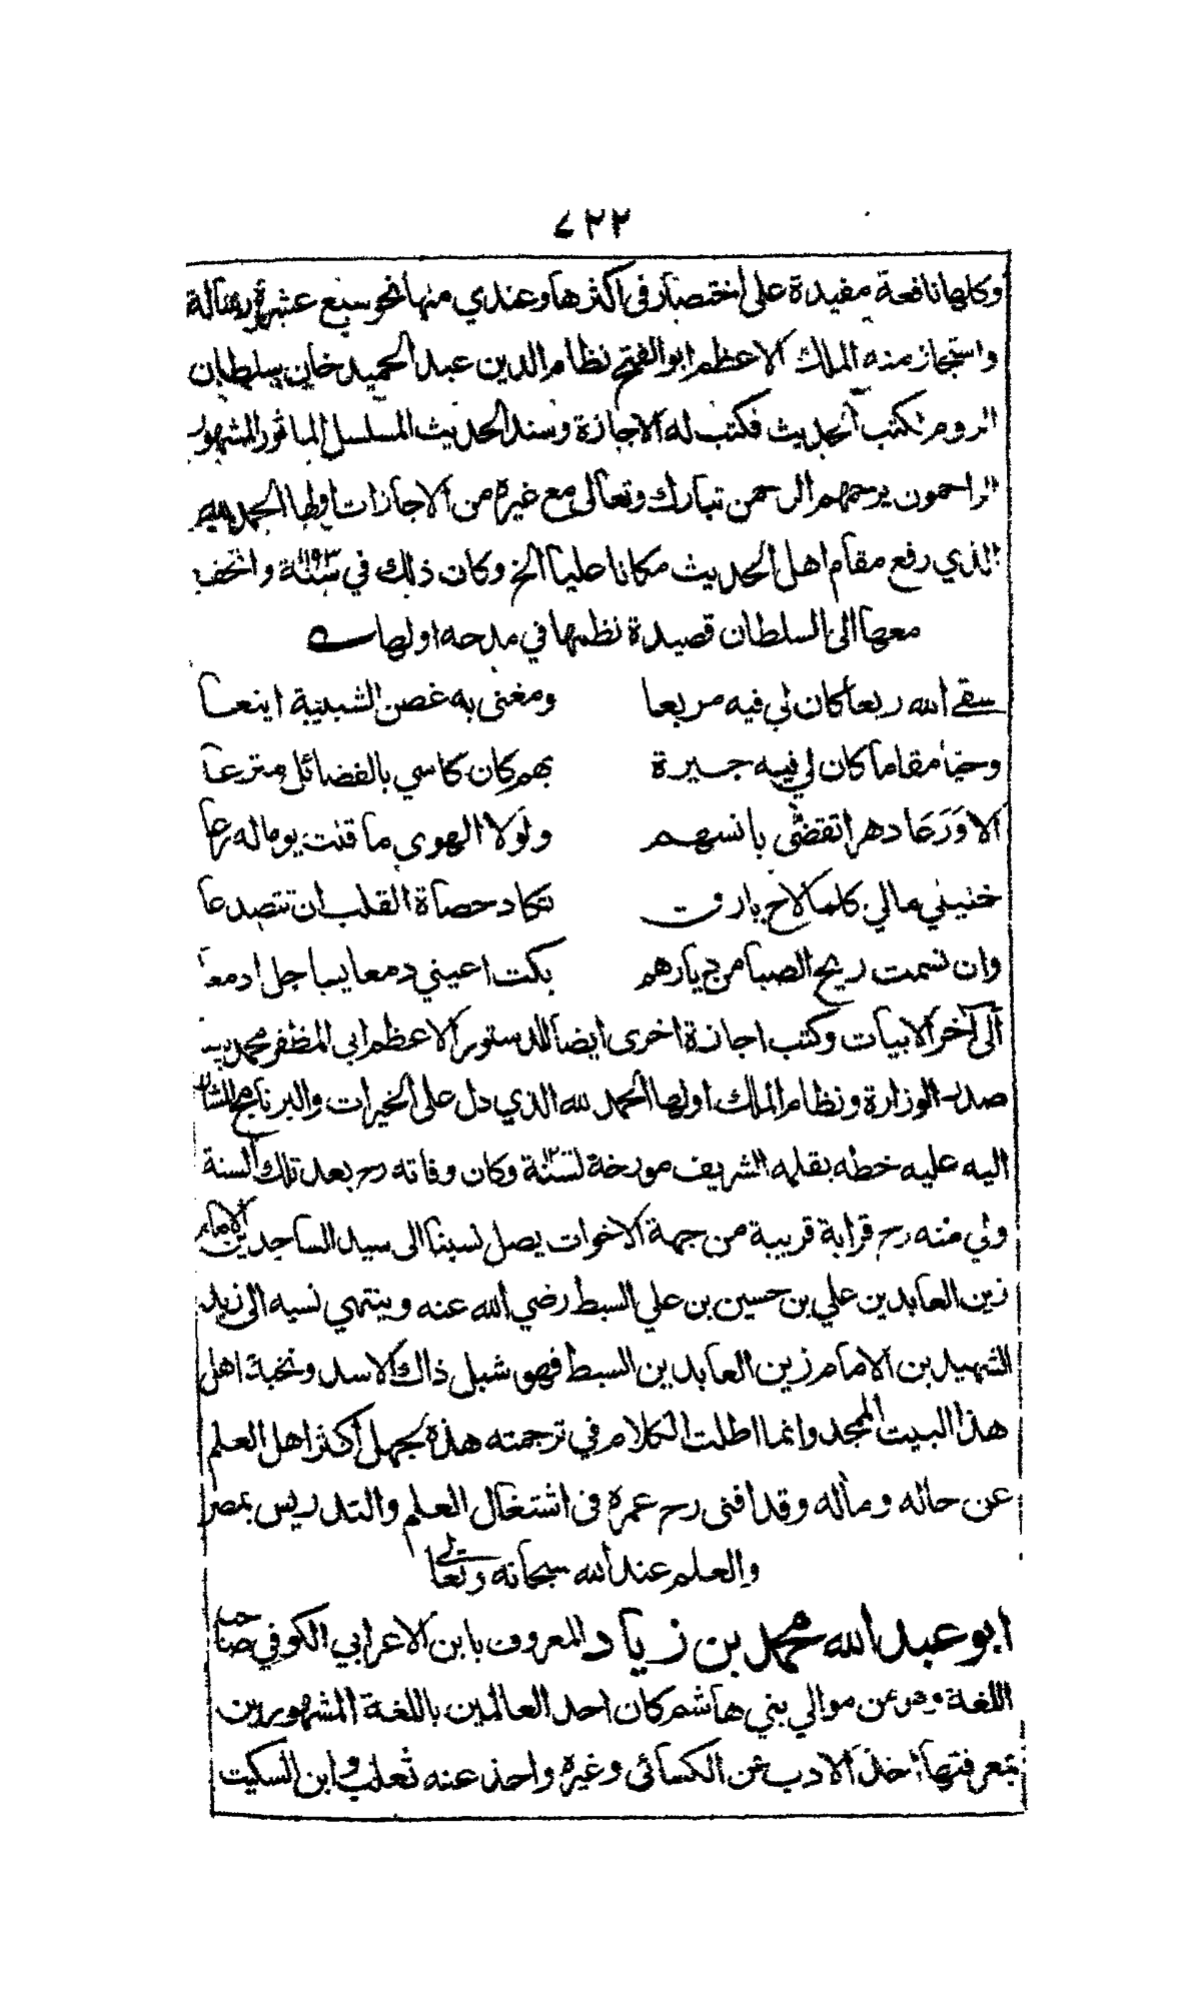 ٧٢٢
وكلها نافعة مفيدة على اختصار في اكثرها وعندي منها نحو سبع عشرة رسالة
واستجاز منه الملك الاعظم ابو الفتح نظام الدين عبد الحميد خان سلطان
الروم بكتب الحديث فكتب له الاجازة وسند الحديث المسلسل المشهور
الراحمون يرحمهم الرحمن تبارك وتعالى مع غيره من الاجازات اولها الحمد لله
الذي رفع مقام اهل الحديث مكانا عليا الخ وكان ذلك في سنة ١١٩٣ واتحف
معها الى السلطان قصيدة نظمها في مدحه اولها
سقى الله ربعا كان لي فيه مربعا ومغنى به غصن الشبيبة اينعا
وحيا مقاما كان لي فيه جيرة بهم كان كاسي بالفضائل مترعا
الا ورعا دهرا تقضى بانسهم ولولا الهوى ما قلت يوما له رعا
خليلي مالي كلما لاح بارق تكاد حصاة القلب ان تتصدعا
وان نسمت ريح الصبا من ديارهم بكت اعيني دمعا يساجل ادمعا
الى آخر الابيات وكتب اجازة اخرى ايضا للدستور الاعظم ابي المظفر محمد
صدر الوزارة ونظام الملك اولها الحمد لله الذي دل على الخيرات والبرنامج المشار
اليه عليه خطه بقلمه الشريف مورخة لسنة وكان وفاته رح بعد تلك السنة
ولي منه رح قرابة قريبة من جهة الاخوات يصل نسبنا الى سيد الساجدين الامام
زين العابدين علي بن حسين بن علي السبط رضي الله عنه وينتمي نسبه الى زيد
الشهيد بن الامام زين العابدين السبط فهو شبل ذاك الاسد ونخبة اهل
هذا البيت الممجد وانما اطلت الكلام في ترجمته هذه لجهل اكثر اهل العلم
عن حاله ومآله وقد افنى رح عمره في اشتغال العلم والتدريس بمصر
والعلم عند الله سبحانه وتعالى
ابو عبد الله محمد بن زياد المعروف بابن الاعرابي الكوفي صاحب
اللغة وهو من موالي بني هاشم كان احد العالمين باللغة المشهورين
بمعرفتها اخذ الادب عن الكسائي وغيره واخذ عنه ثعلب وابن السكيت